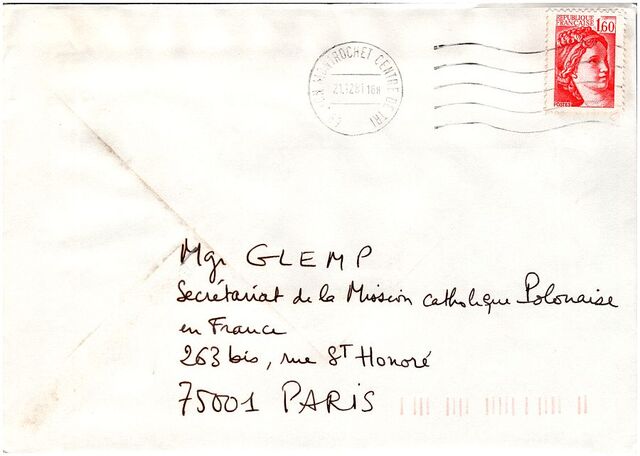 REPUBLIQUE
FRANÇAISE
1,60
POSTES
MONTROCHET CENTRE DE TRI
21.12.81 18H
Mgr GLEMP
Secrétariat de la Mission catholique Polonaise
en France
263 bis, rue St Honoré
75001 PARIS